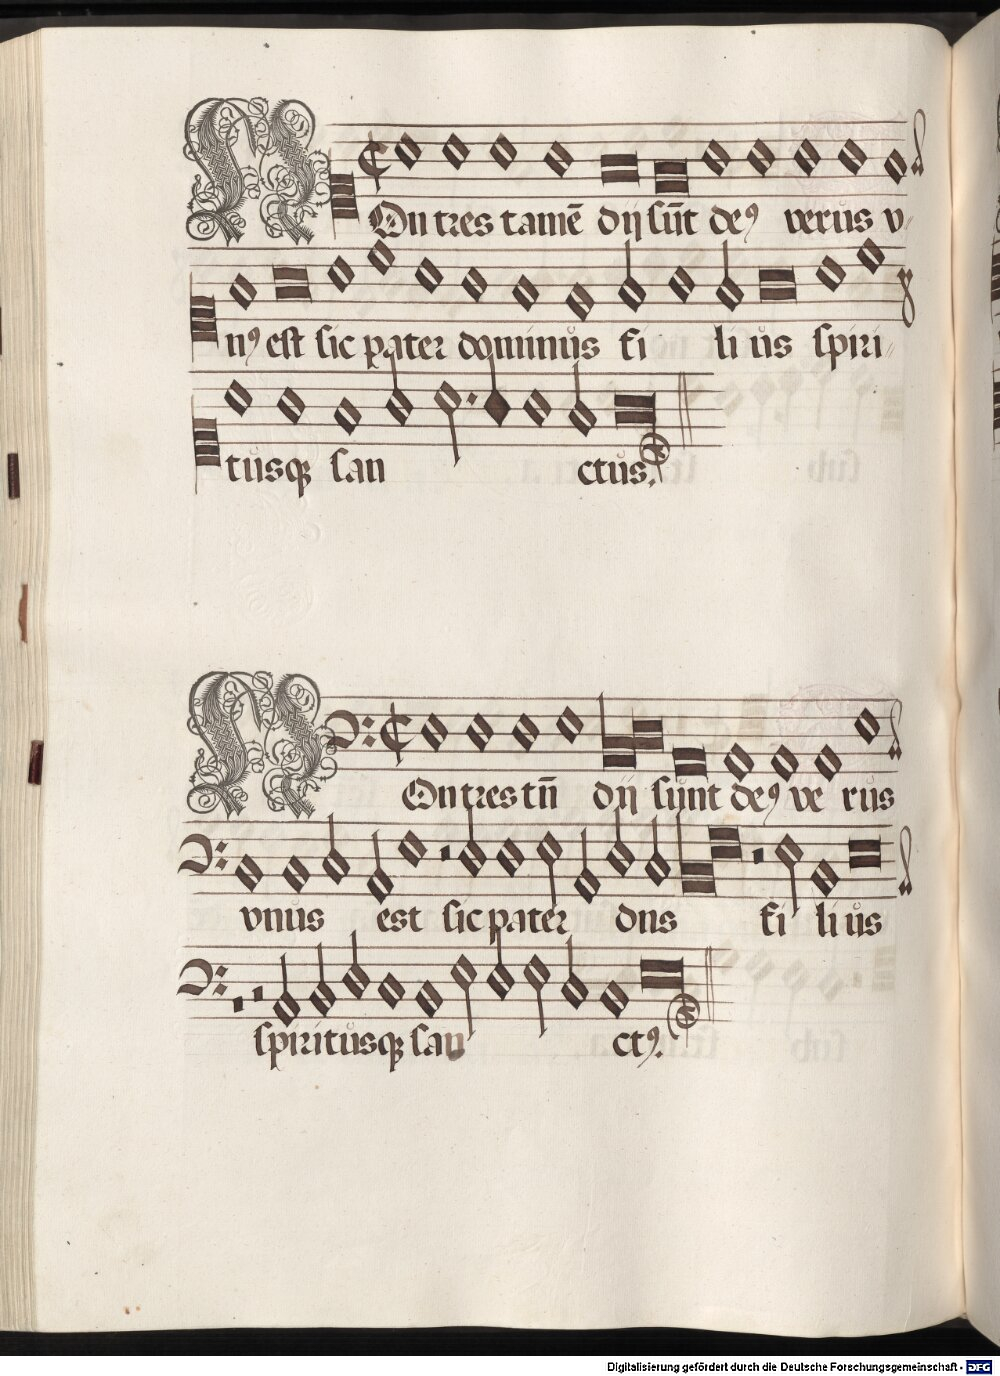 NOn tres tamē dij sūt deꝰ verus v-
nꝰ est sic pater dominus fi li us spiri-
tusqꝫ san ctus.
NOn tres tn̄ dij sunt deꝰ ve rus
vnus est sic pater dns fi li us
spiritusqꝫ san ctꝰ.
Digitalisierung gefördert durch die Deutsche Forschungsgemeinschaft - DFG